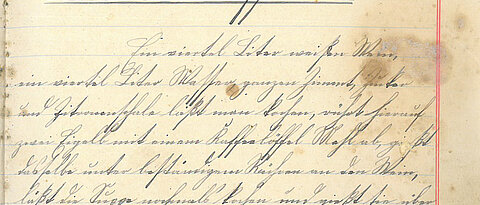 Ein viertel Liter weißen Wein,
ein viertel Liter Wasser, ganzen Zimmt, Zucker
und Zitronenschale läßt man kochen, rührt hierauf
zwei Eigelb mit einem Kaffeelöffel Mehl ab, gießt
dasselbe unter beständigem Rühren an den Wein,
läßt die Suppe nochmals kochen und gießt sie über